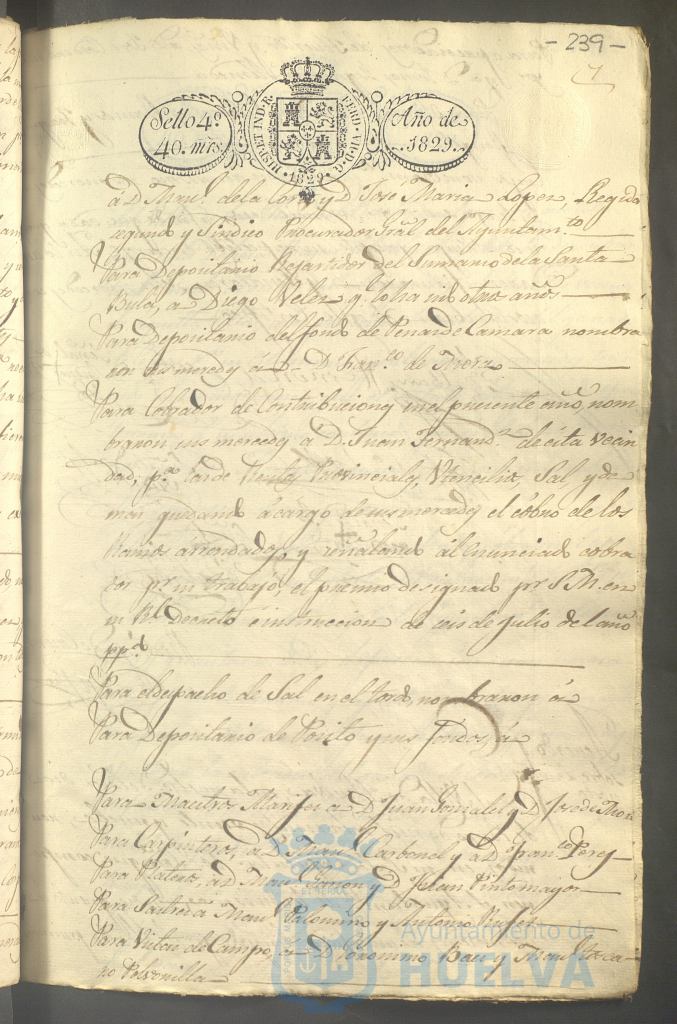 - 239 -
Sello 4º
40. mrs.
HISP. ET IND. R.
FERD. VII. D. G.
1829
Año de
1829.
á D. Man.l de la Corte y D. José Maria Lopez, Regidor
segundo y Sindico Procurador Gral del Ayuntam.to
Para Depositario Repartidor del Sumario de la Santa
Bula, á Diego Velez q. lo ha sido otros años
Para Depositario del fondo de Penas de Camara nombra-
ron sus mercedes á D. Fran.co de Mora
Para Cobrador de Contribuciones en el presente año, nom-
braron sus mercedes a D. Juan Fernand.z de esta vecin-
dad, p.a las de Rentas Provinciales, Utencilios, Sal, y de-
mas quedando a cargo de sus mercedes el cobro de los
Ramos arrendados, y señalando al enunciado cobra-
dor p.r su trabajo, el premio designado p.r S. M. en
su Rl. Decreto e instruccion de seis de Julio del año
pp.do
Para el despacho de Sal en el Toldo, nombraron á
Para Depositario de Posito y sus fondos, á
Para Maestros a D. Juan Gonzalez y D. Jose de
Para Carpinteros, a D. Man.l Carbonel y a D. Fran.co Perez
Para Plateros, a D. Man.l y D. Juan Pintomayor
Para Sastres á Man.l Palomino y Antonio
Para Vistas de Campo, a D. Geronimo y Man.l Tosca-
no Polvorilla
Ayuntamiento de
HUELVA